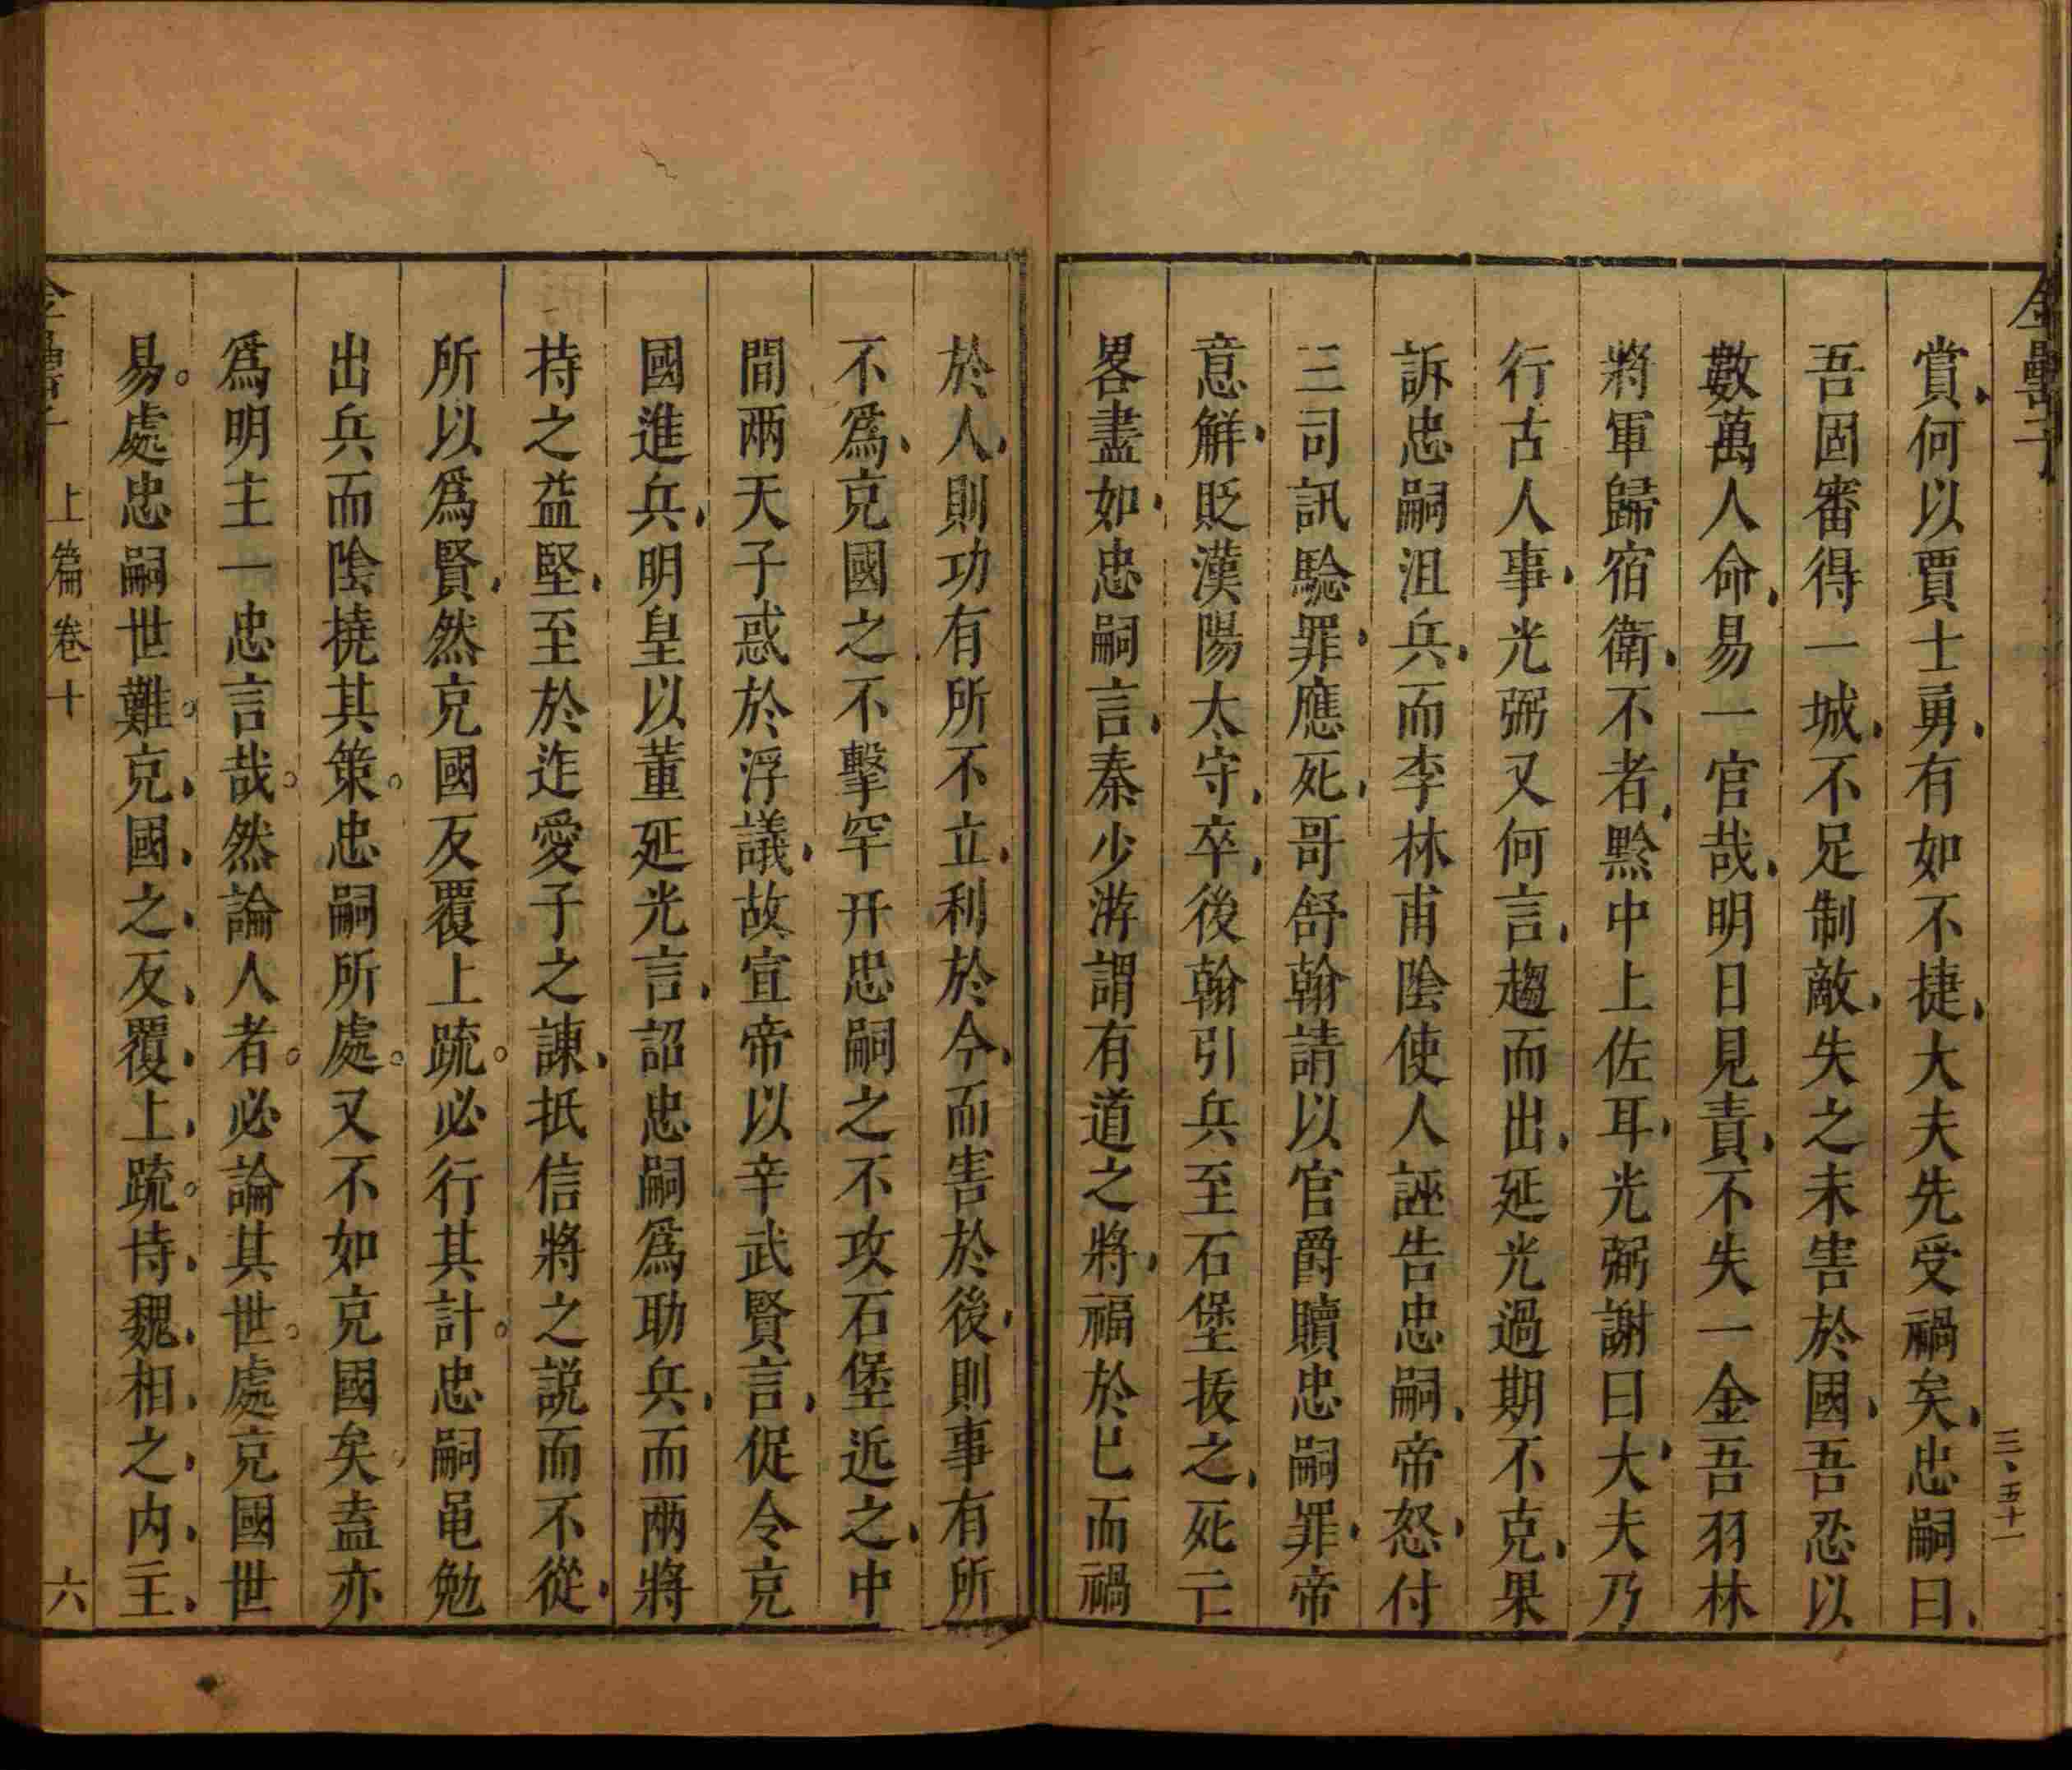 金罍子
三、五十一
賞、何以賈士勇、有如不捷、大夫先受禍矣、忠嗣曰、
吾固審得一城、不足制敵、失之未害於國、吾忍以
數萬人命、易一官哉、明日見責、不失一金吾羽林
將軍歸宿衛、不者、黔中上佐耳、光弼謝曰、大夫乃
行古人事、光弼又何言、趨而出、延光過期不克、果
訴忠嗣沮兵、而李林甫陰使人誣告忠嗣、帝怒、付
三司訊驗罪、應死、哥舒翰請以官爵贖忠嗣罪、帝
意解、貶漢陽太守、卒、後翰引兵至石堡拔之、死亡
畧盡如、忠嗣言、秦少游謂有道之將、福於已而禍
於人、則功有所不立、利於今、而害於後、則事有所
不為、克國之不擊罕幵忠嗣之不攻石堡近之、中
間两天子惑於浮議、故宣帝以辛武賢言、促令克
國進兵、明皇以董延光言、詔忠嗣為助兵、而两將
持之益堅、至於迕愛子之諫、抵信將之説而不從、
所以為賢、然克國反覆上疏。必行其計。忠嗣黽勉
出兵而陰撓其策。忠嗣所處。又不如克國矣葢亦
為明主一忠言哉。然論人者。必論其世。處克國世
易。處忠嗣世難。克、國、之、反、覆、上、疏。恃、魏、相、之、内、主、
金罍子 上篇卷十 六